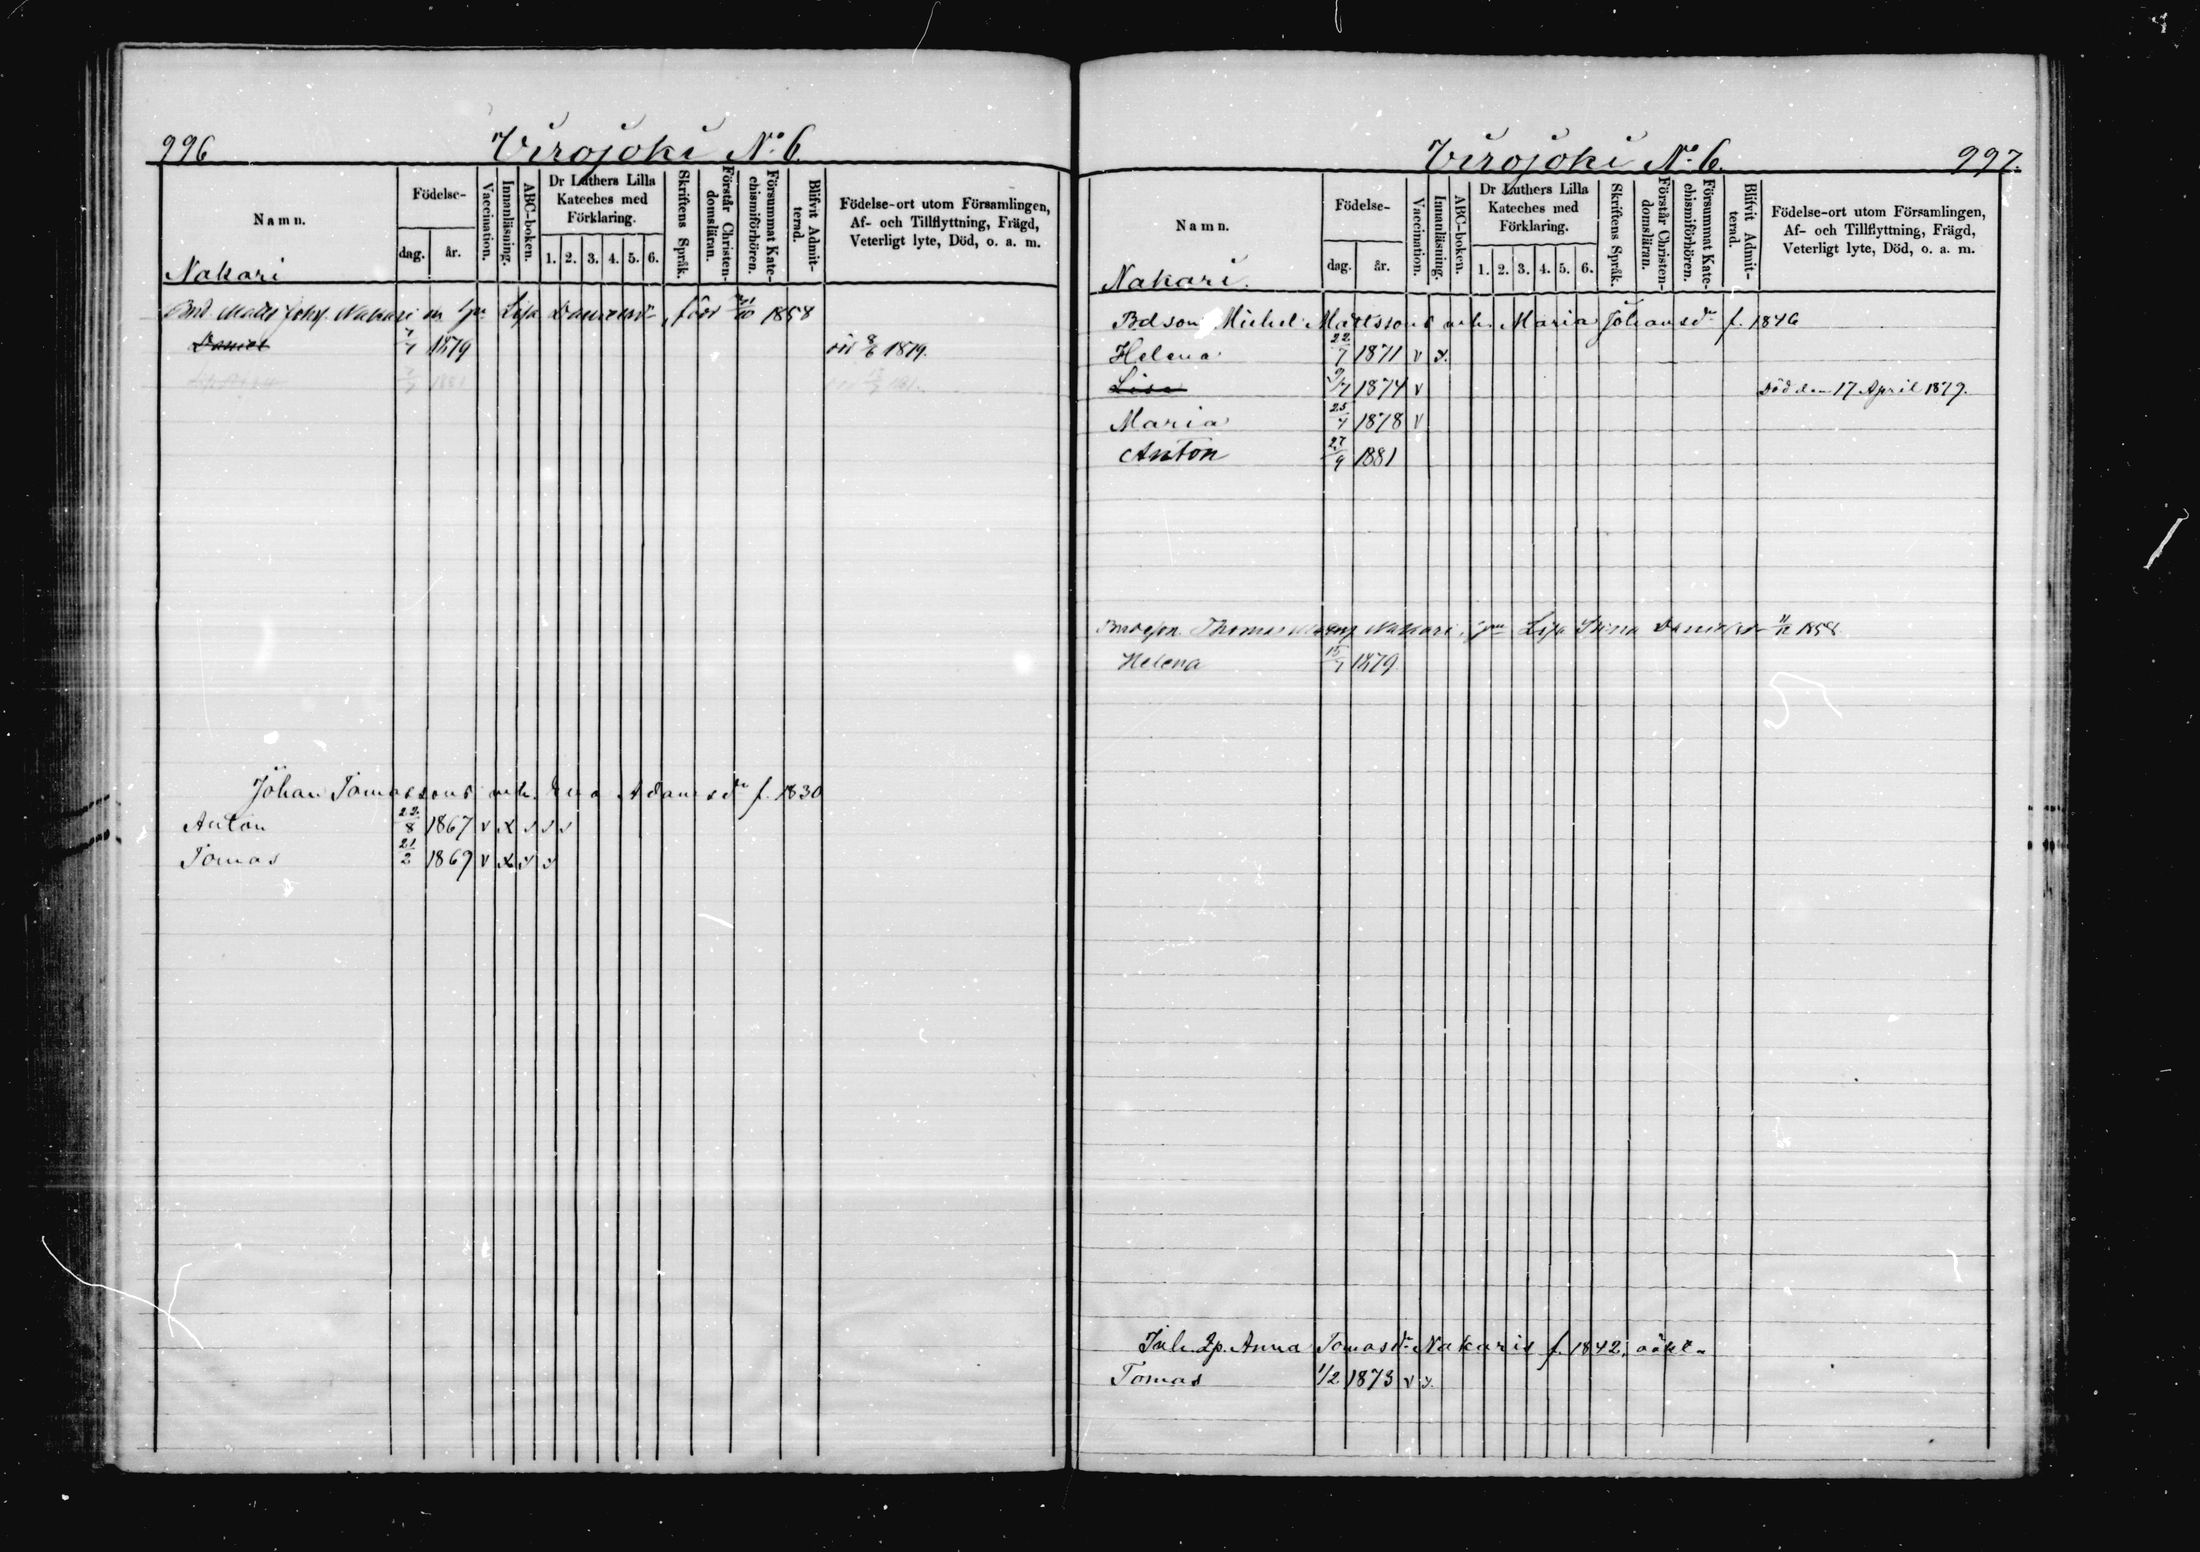 996 Virojoki No 6.
Namn. Födelse- dag. år. Vaccination. Innanläsning. ABC-boken. Dr Luthers Lilla Kateches med Förklaring. 1. 2. 3. 4. 5. 6. Skriftens Språk. Förstår Christendomsläran. Försummat Katechismiförhören. Blifvit Admitterad. Födelse-ort utom Församlingen, Af- och Tillflyttning, Frägd, Veterligt lyte, Död, o. a. m.
Nakari
Bnd. Matts Johs. Nakari m Lisa Danielsdr, född 1858
Daniel 1879 död 8/6 1879.
1881
Johan Tomassons o. h. Eva Adamsdr f. 1830
Anton 22/8 1867 v x v v v
Tomas 21/2 1869 v x v v
Virojoki No 6. 997.
Namn. Födelse- dag. år. Vaccination. Innanläsning. ABC-boken. Dr Luthers Lilla Kateches med Förklaring. 1. 2. 3. 4. 5. 6. Skriftens Språk. Förstår Christendomsläran. Försummat Katechismiförhören. Blifvit Admitterad. Födelse-ort utom Församlingen, Af- och Tillflyttning, Frägd, Veterligt lyte, Död, o. a. m.
Nakari.
Bdson Michel Mattssons o. h. Maria Johansdr f. 1846
Helena 22/7 1871 v v.
Lisa 9/7 1874 v Död den 17 April 1879.
Maria 25/4 1878 v
Anton 27/9 1881
Bndeson. Thomas Nakari, Lisa Stina Danielsdr 1858.
Helena 15/7 1879.
Inh. Anna Tomasdr Nakaris f. 1842, oäkt-
Tomas 1/2 1873 v v.